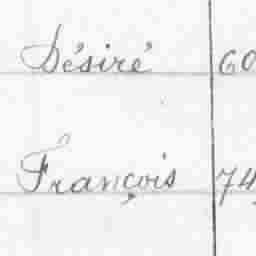 Désiré 60
François 74